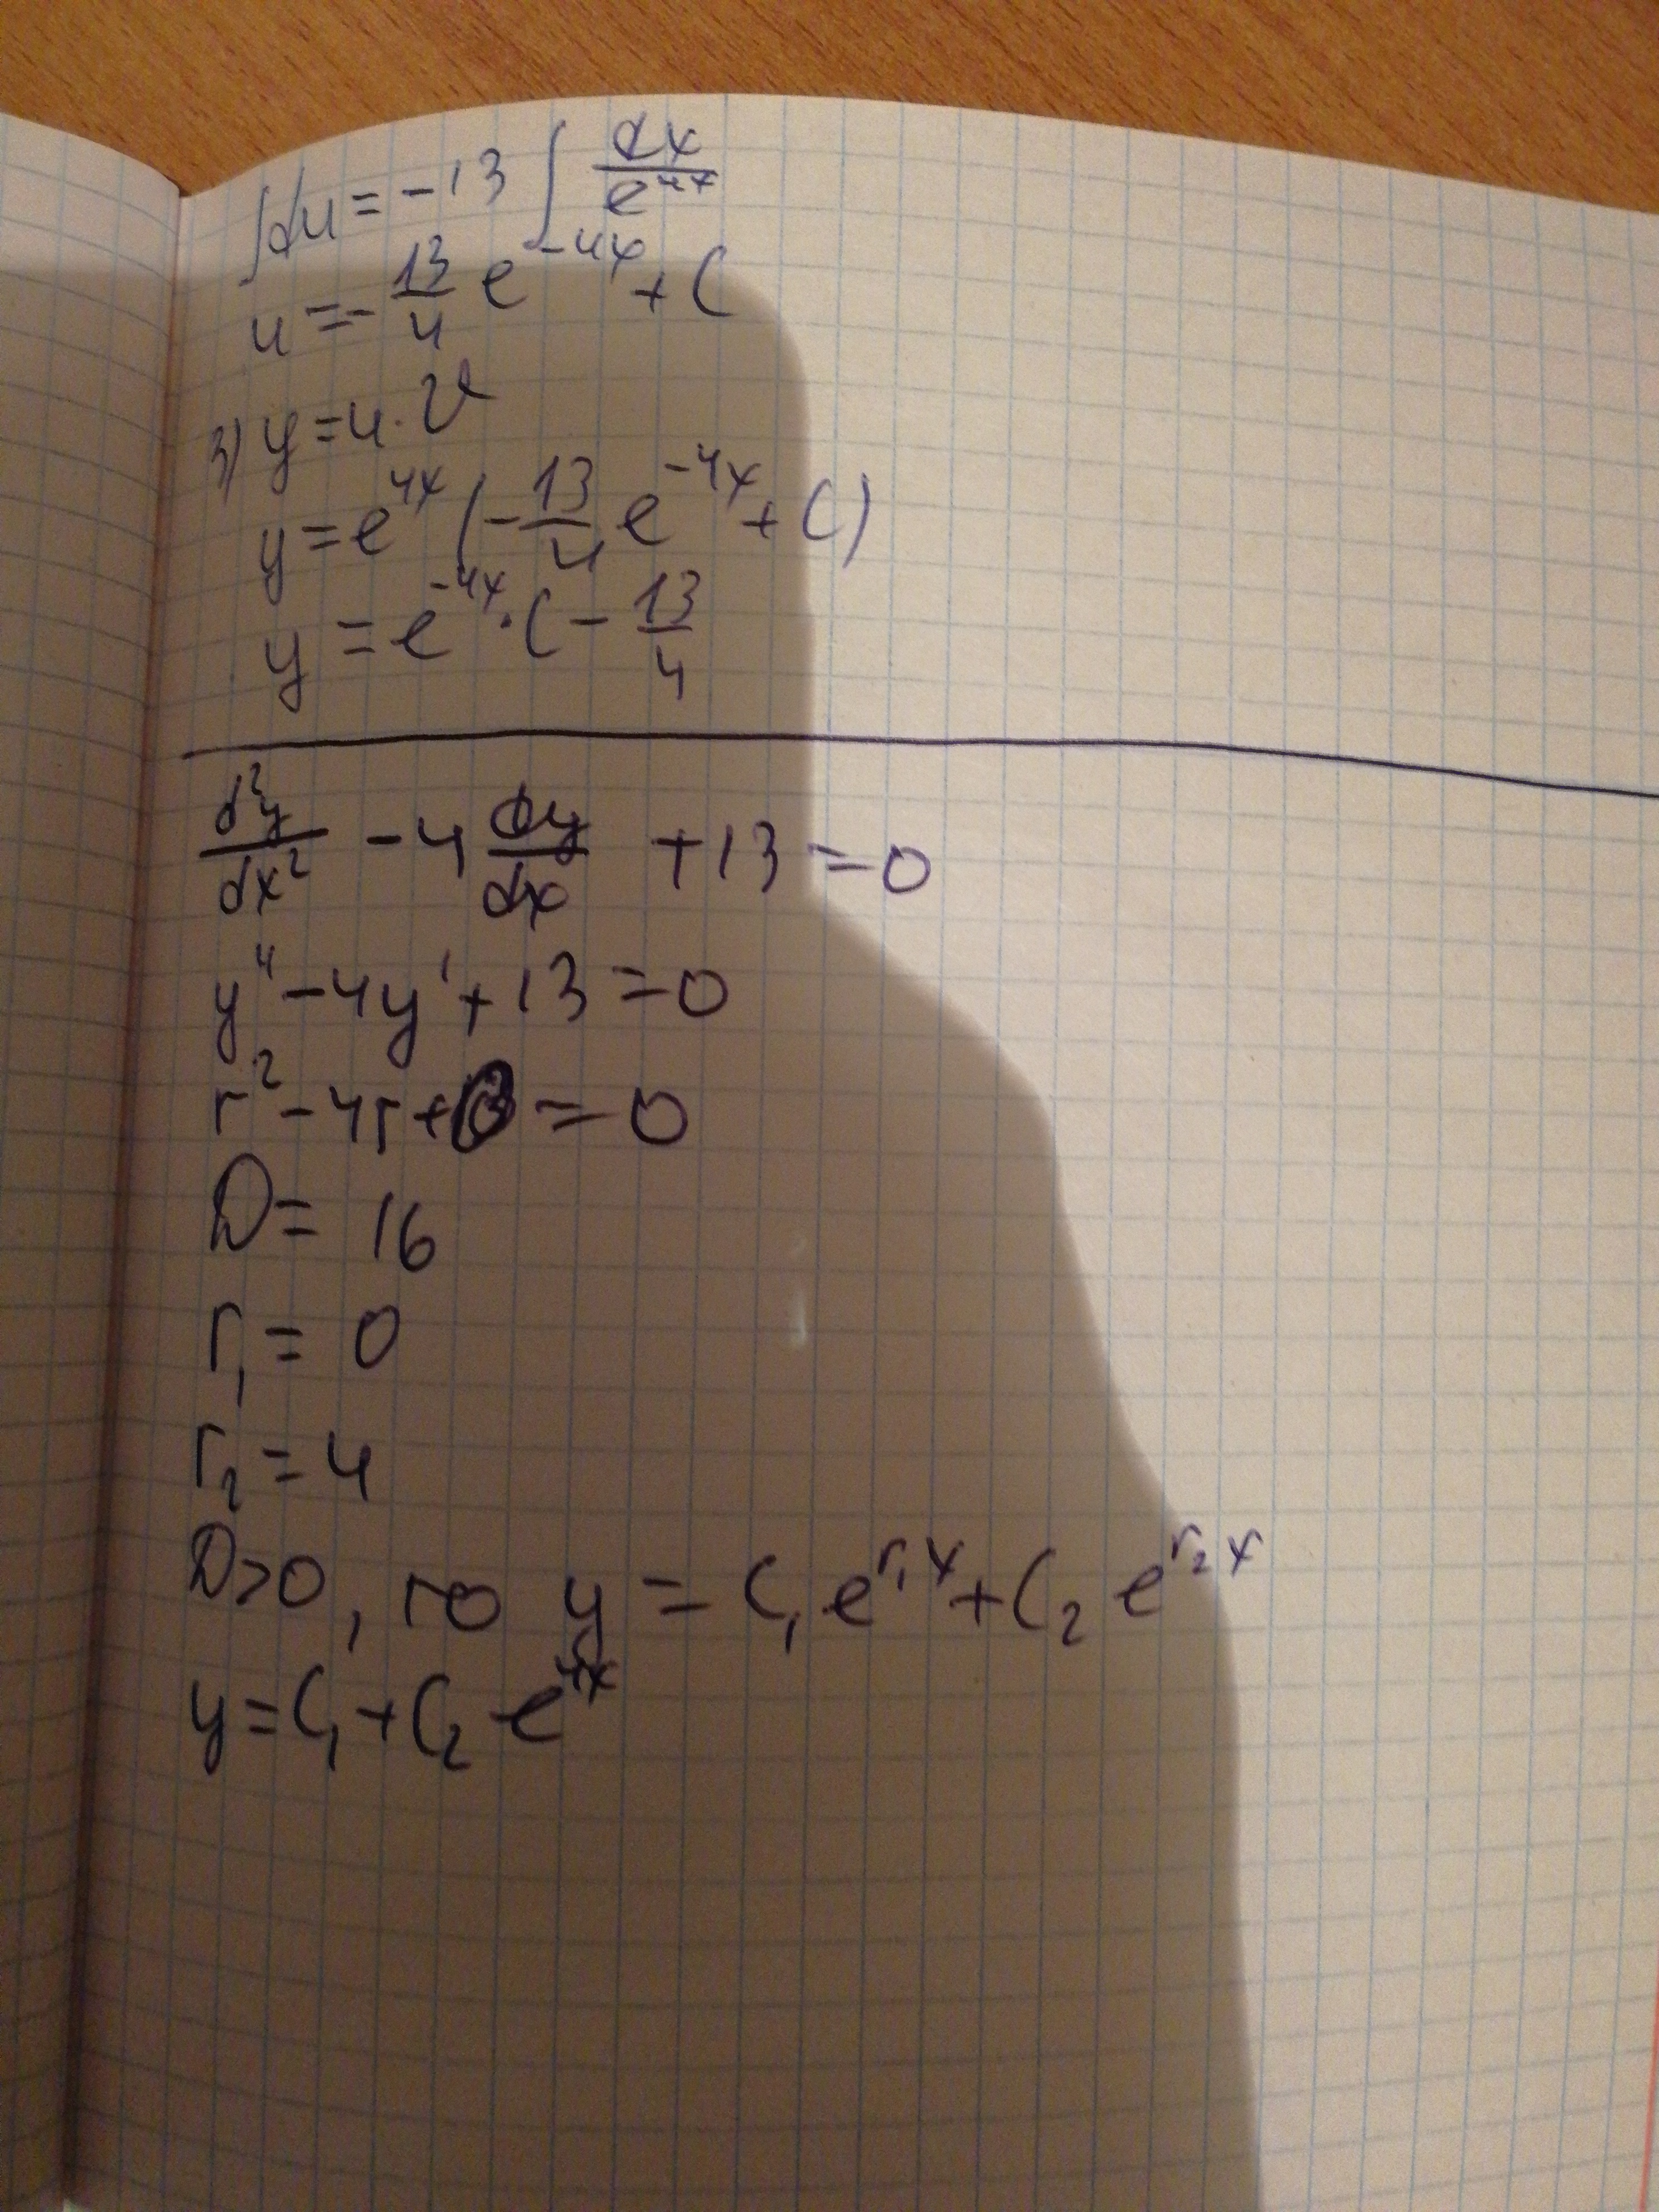 ∫du = -13 ∫ dx/e^4x
u = -13/4 e^-4x + C
3) y = u·v
y = e^4x (-13/4 e^-4x + C)
y = e^-4x · C - 13/4
d²y/dx² - 4 dy/dx + 13 = 0
y'' - 4y' + 13 = 0
r² - 4r + = 0
D = 16
r₁ = 0
r₂ = 4
D>0, то y = C₁ e^r₁x + C₂ e^r₂x
y = C₁ + C₂ e^4x